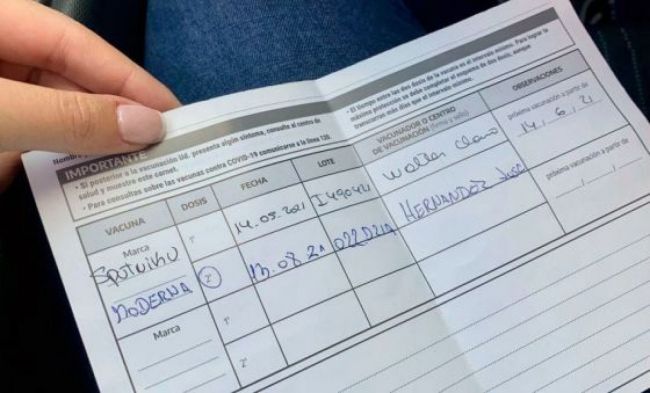 Nombre
IMPORTANTE
• Si posterior a la vacunación Ud. presenta algún síntoma, consulte al centro de
salud y muestre este carnet.
• Para consultas sobre las vacunas contra COVID-19 comunicarse a la línea 120.
• El tiempo entre las dos dosis de la vacuna es el intervalo mínimo. Para lograr la
máxima protección se debe completar el esquema de dos dosis, aunque
transcurran más días que el intervalo mínimo.
VACUNA DOSIS FECHA LOTE VACUNADOR O CENTRO DE VACUNACIÓN (firma y sello) OBSERVACIONES
Marca 1° 14.05.2021 Walter próxima vacunación a partir de
14.6.21
MODERNA 2° 13.08.21 HERNANDEZ próxima vacunación a partir de
Marca 1°
2°